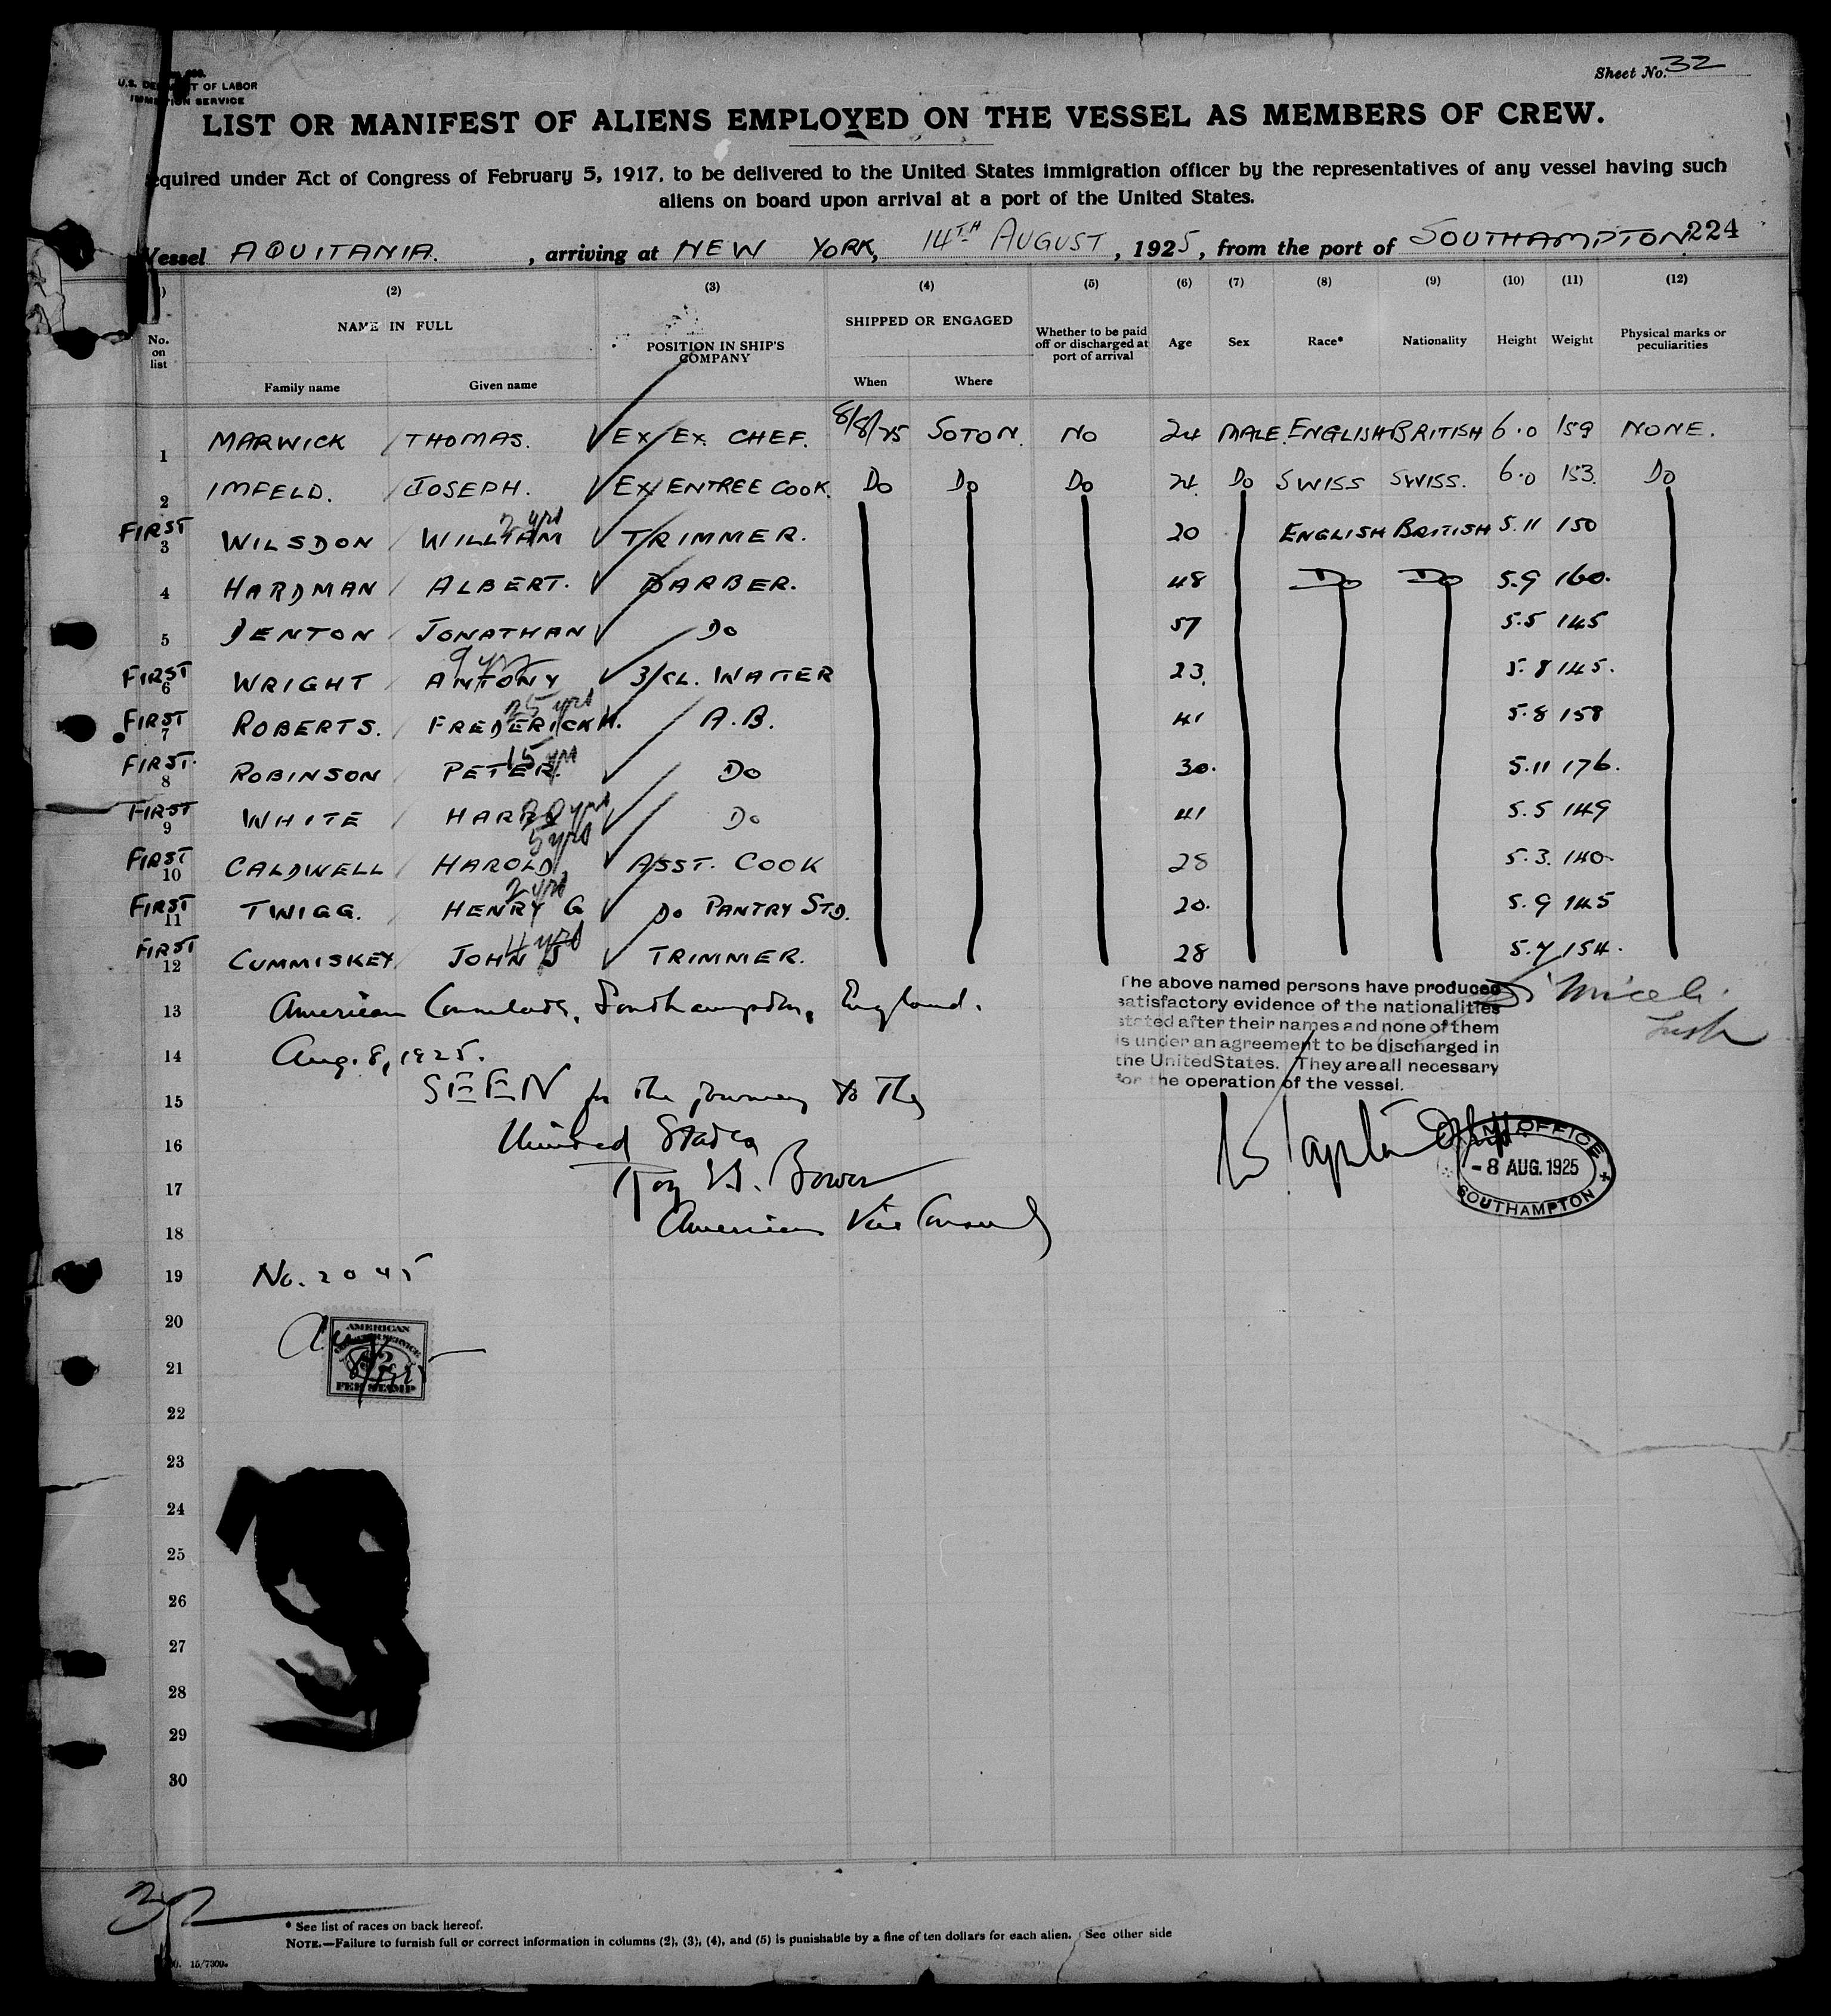 Sheet No. 32
U.S. DEPARTMENT OF LABOR
IMMIGRATION SERVICE
LIST OR MANIFEST OF ALIENS EMPLOYED ON THE VESSEL AS MEMBERS OF CREW.
equired under Act of Congress of February 5, 1917, to be delivered to the United States immigration officer by the representatives of any vessel having such
aliens on board upon arrival at a port of the United States.
Vessel AQUITANIA. , arriving at NEW YORK, 14TH AUGUST , 1925, from the port of SOUTHAMPTON 224
(2) (3) (4) (5) (6) (7) (8) (9) (10) (11) (12)
No. on list NAME IN FULL Family name Given name POSITION IN SHIP'S COMPANY SHIPPED OR ENGAGED When Where Whether to be paid off or discharged at port of arrival Age Sex Race* Nationality Height Weight Physical marks or peculiarities
1 MARWICK / THOMAS. EX/EX. CHEF. 8/8/25 SOTON. NO 24 MALE. ENGLISH BRITISH 6.0 159 NONE.
2 IMFELD. / JOSEPH. EX/ENTREE COOK. Do Do Do 24. Do SWISS SWISS. 6.0 153. Do
FIRST 3 WILSDON / WILLIAM 2 yrs TRIMMER. 20 ENGLISH BRITISH 5.11 150
4 HARDMAN / ALBERT. BARBER. 48 Do Do 5.9 160.
5 DENTON / JONATHAN Do 57 5.5 145
FIRST 6 WRIGHT / ANTONY 9 yrs 3/CL. WAITER 23. 5.8 145.
FIRST 7 ROBERTS. / FREDERICK H. 25 yrs A.B. 41 5.8 158
FIRST. 8 ROBINSON / PETER. 15 yrs Do 30. 5.11 176.
FIRST 9 WHITE / HARRY 20 yrs Do 41 5.5 149
FIRST 10 CALDWELL / HAROLD 5 yrs ASST. COOK 28 5.3. 140
FIRST 11 TWIGG. / HENRY G 2 yrs Do PANTRY STD. 20. 5.9 145
FIRST 12 CUMMISKEY / JOHN J 11 yrs TRIMMER. 28 5.7 154.
13 American Consulate, Southampton, England.
14 Aug. 8, 1925.
The above named persons have produced
satisfactory evidence of the nationalities
stated after their names and none of them
is under an agreement to be discharged in
the United States. They are all necessary
for the operation of the vessel.
15 SEEN for the journey to the
16 United States
17 Roy W. Bower
18 American Vice Consul
OFFICE
- 8 AUG. 1925
SOUTHAMPTON
19 No. 2045
20
21
AMERICAN
SERVICE
$2
FEE STAMP
22
23
24
25
26
27
28
29
30
32
* See list of races on back hereof.
NOTE.—Failure to furnish full or correct information in columns (2), (3), (4), and (5) is punishable by a fine of ten dollars for each alien. See other side
15/7309.